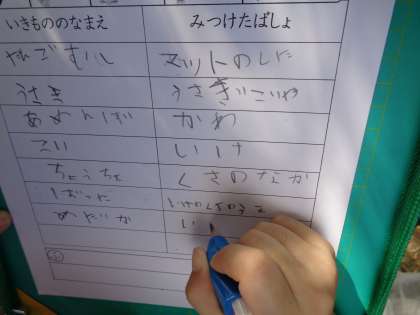 いきもののなまえ みつけたばしょ
だんごむし マットのした
うさぎ うさぎごや
あめんぼ かわ
こい いけ
ちょうちょ くさのなか
ばった
めだか い